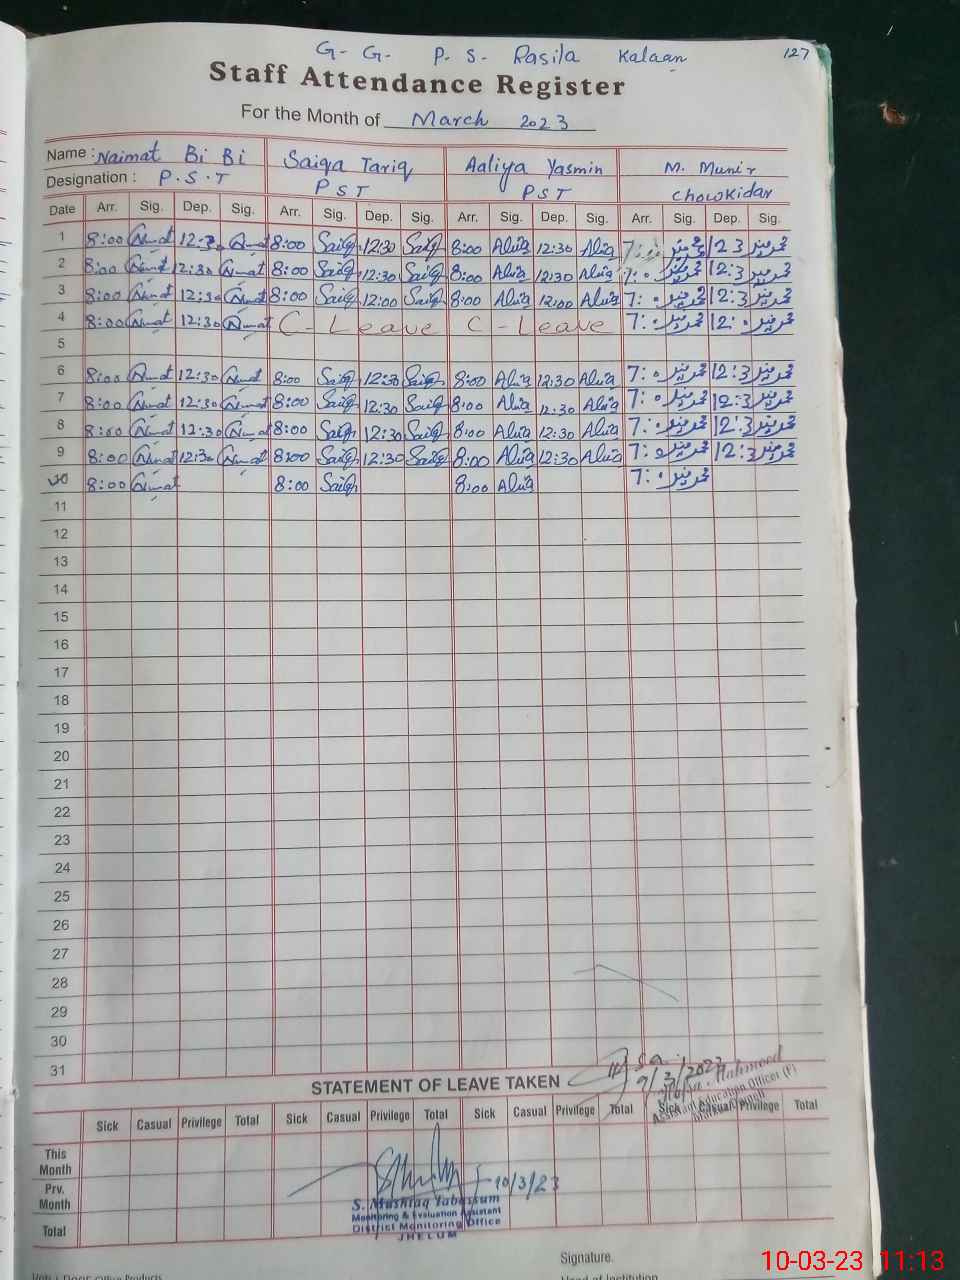 G- G. P. S. Rasila Kalaan 127
Staff Attendance Register
For the Month of March 2023
Name : Naimat Bi Bi Saiqa Tariq Aaliya Yasmin M. Munir
Designation : P.S.T PST PST Chowkidar
Date Arr. Sig. Dep. Sig. Arr. Sig. Dep. Sig. Arr. Sig. Dep. Sig. Arr. Sig. Dep. Sig.
1 8:00 Nimat 12:30 Nimat 8:00 Saiqa 12:30 Saiqa 8:00 Alia 12:30 Alia محمد منیر 12 3 محمد منیر
2 8:00 Nimat 12:30 Nimat 8:00 Saiqa 12:30 Saiqa 8:00 Alia 12:30 Alia 7:0 محمد منیر 12:3 محمد منیر
3 8:00 Nimat 12:30 Nimat 8:00 Saiqa 12:00 Saiqa 8:00 Alia 12:00 Alia 7:0 محمد منیر 12:3 محمد منیر
4 8:00 Nimat 12:30 Nimat C-Leave C-Leave 7:0 محمد منیر 12:0 محمد منیر
5
6 8:00 Nimat 12:30 Nimat 8:00 Saiqa 12:30 Saiqa 8:00 Alia 12:30 Alia 7:0 محمد منیر 12:3 محمد منیر
7 8:00 Nimat 12:30 Nimat 8:00 Saiqa 12:30 Saiqa 8:00 Alia 12:30 Alia 7:0 محمد منیر 12:3 محمد منیر
8 8:00 Nimat 12:30 Nimat 8:00 Saiqa 12:30 Saiqa 8:00 Alia 12:30 Alia 7:0 محمد منیر 12:3 محمد منیر
9 8:00 Nimat 12:30 Nimat 8:00 Saiqa 12:30 Saiqa 8:00 Alia 12:30 Alia 7:0 محمد منیر 12:3 محمد منیر
10 8:00 Nimat 8:00 Saiqa 8:00 Alia 7:0 محمد منیر
11
12
13
14
15
16
17
18
19
20
21
22
23
24
25
26
27
28
29
30
31
STATEMENT OF LEAVE TAKEN
9/3/2023
Mahmood
Assistant Education Officer (F)
Sick Casual Privilege Total Sick Casual Privilege Total Sick Casual Privilege Total Sick Casual Privilege Total
This Month
Prv. Month
10/3/23
Total
S. Mushtaq Tabassum
Monitoring & Evaluation Assistant
District Monitoring Office
JHELUM
Signature.
Head of Institution
10-03-23 11:13